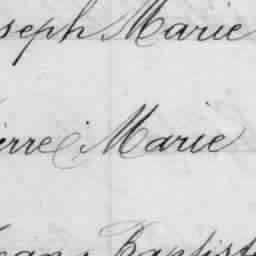 seph Marie
ierre Marie
Jean Baptist